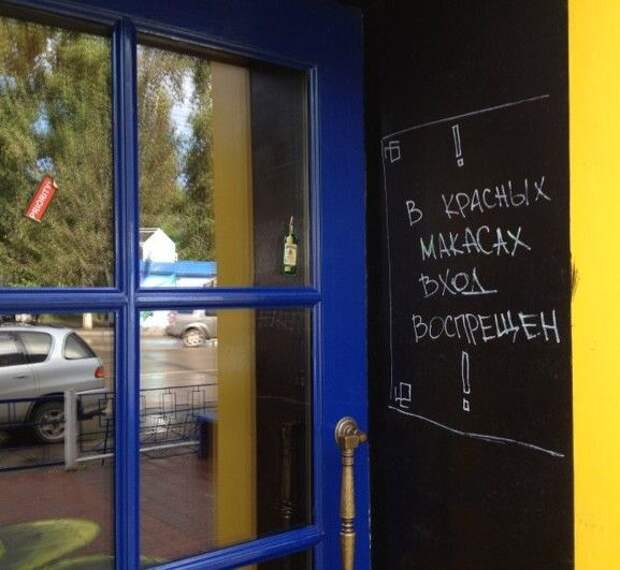 PRIORITY
!
В КРАСНЫХ
МАКАСАХ
ВХОД
ВОСПРЕЩЕН
!